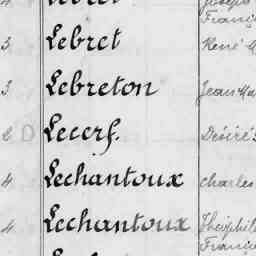 Franç
3 Lebret René M
3 Lebreton Jean Ma
Lecerf. Désiré
4 Lechantoux charles
4 Lechantoux Théophil
Franço